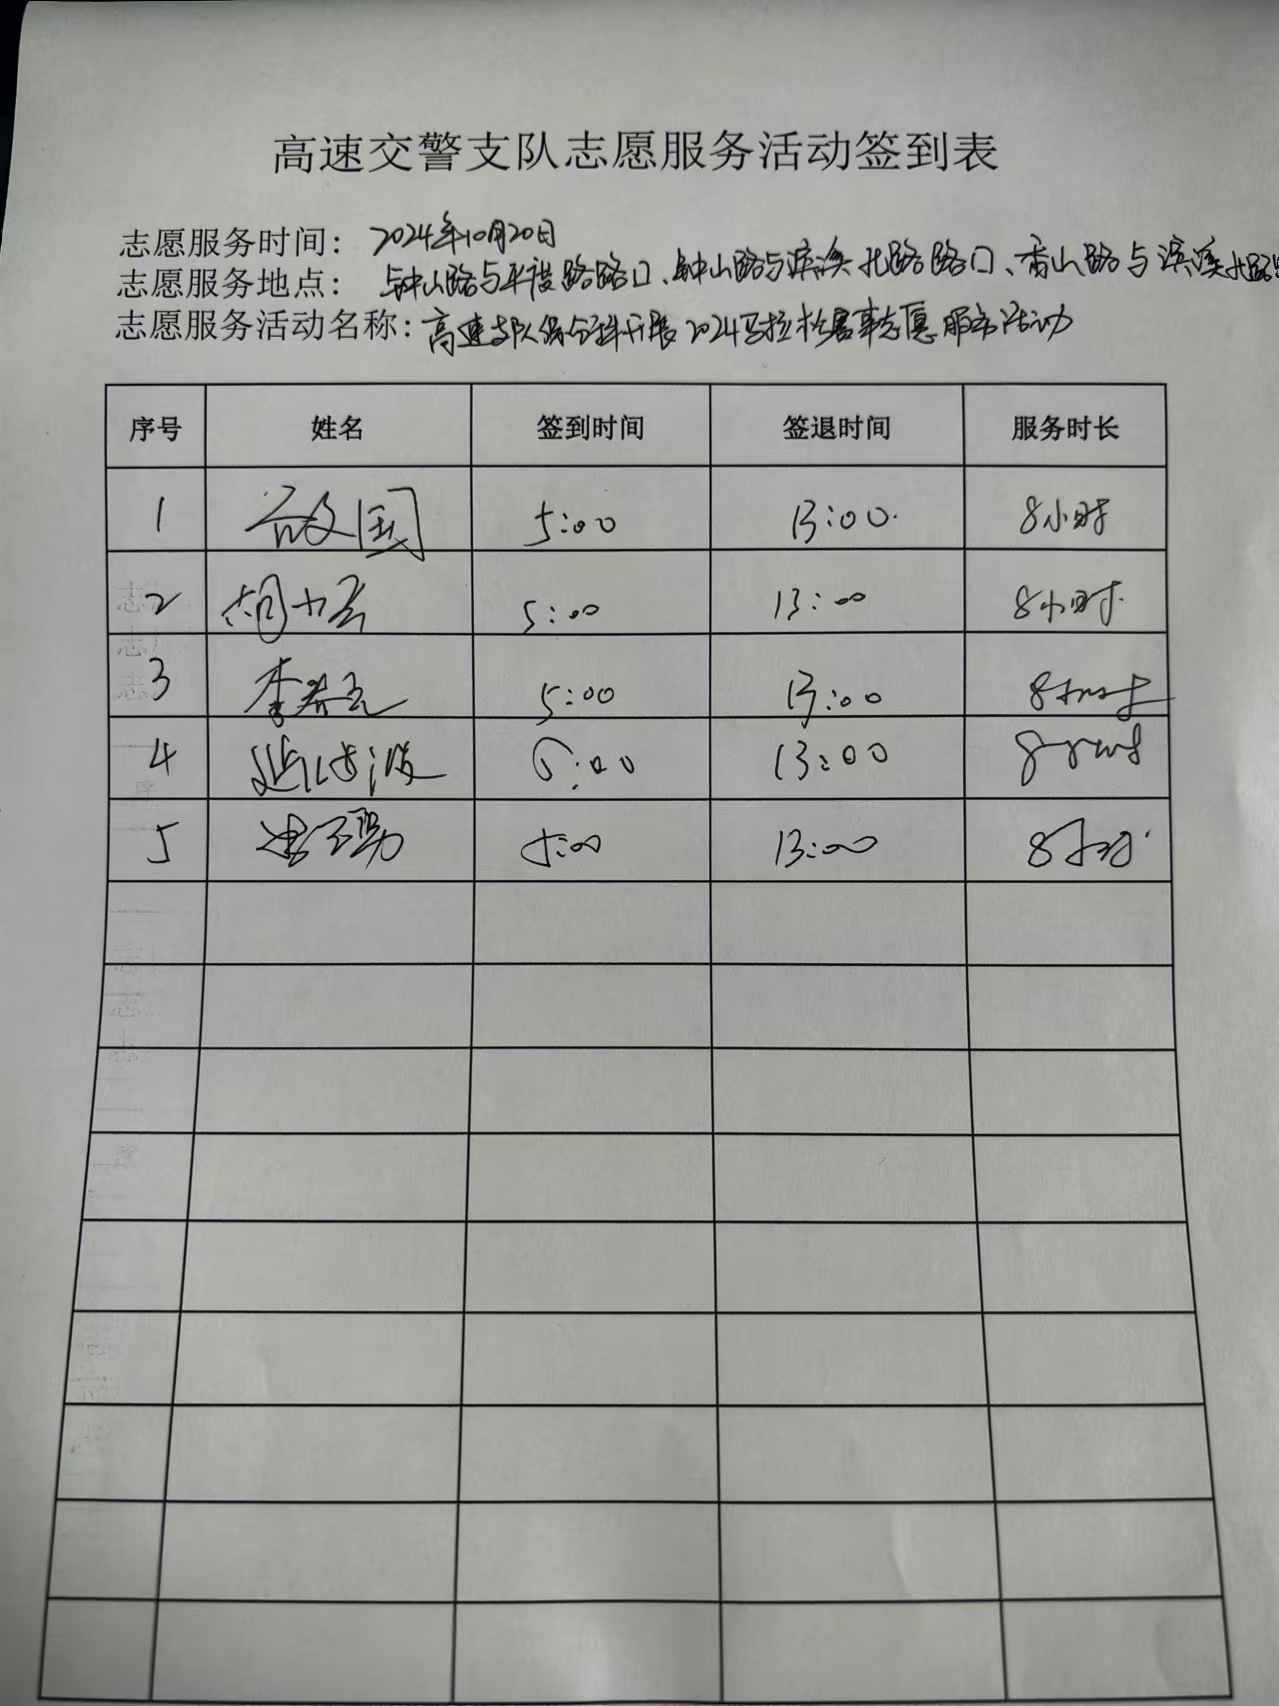 高速交警支队志愿服务活动签到表
志愿服务时间： 2024年10月20日
志愿服务地点： 钟山路与平设路路口、钟山路与滨溪北路路口、香山路与滨溪北路
志愿服务活动名称：高速支队综合科开展2024马拉松赛事志愿服务活动
序号 姓名 签到时间 签退时间 服务时长
1 国 5:00 13:00 8小时
2 胡小云 5:00 13:00 8小时
3 李 5:00 13:00 8小时
4 波 5:00 13:00 8小时
5 5:00 13:00 8小时